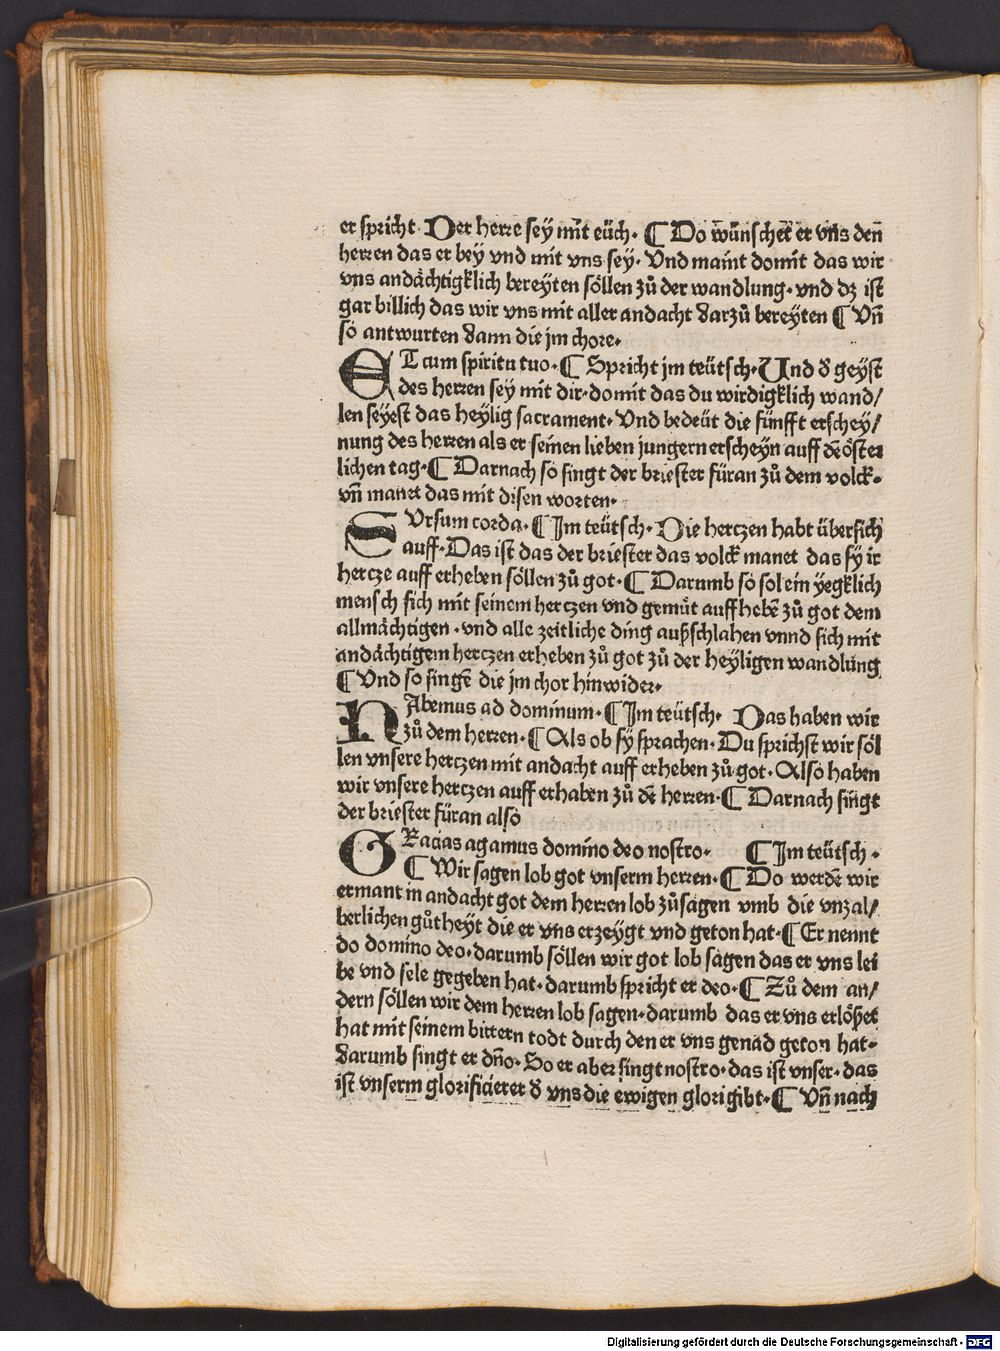 er spricht· Der herre sey mit eüch· ¶ Do wünschet er vns den
herren das er bey vnd mit vns sey· Vnd maint domit das wir
vns andächtigklich bereyten söllen zů der wandlung· vnd dz ist
gar billich das wir vns mit aller andacht darzů bereyten ¶ Vn̄
so antwurten dann die jm chore·
ET cum spiritu tuo· ¶ Spricht jm teütsch· Und d̕ geyst
des herren sey mit dir· domit das du wirdigklich wand/
len seyest das heylig sacrament· Vnd bedeüt die fünfft erschey/
nung des herren als er seinen lieben jungern erscheyn auff dē öster
lichen tag· ¶ Darnach so singt der briester füran zů dem volck·
vn̄ manet das mit disen worten·
SVrsum corda· ¶ Im teütsch· Die hertzen habt übersich
auff· Das ist das der briester das volck manet das sy ir
hertze auff erheben söllen zů got· ¶ Darumb so sol ein yegklich
mensch sich mit seinem hertzen vnd gemüt auff hebē zů got dem
allmächtigen · vnd alle zeitliche ding außschlahen vnnd sich mit
andächtigem hertzen erheben zů got zů der heyligen wandlung
¶ Vnd so singē die jm chor hinwider·
HAbemus ad dominum· ¶ Im teütsch· Das haben wir
zů dem herren· ¶ Als ob sy sprachen· Du sprichst wir söl
len vnsere hertzen mit andacht auff erheben zů got· Also haben
wir vnsere hertzen auff erhaben zů dē herren· ¶ Darnach singt
der briester füran also
GRacias agamus domino deo nostro· ¶ Im teütsch·
¶ Wir sagen lob got vnserm herren· ¶ Do werdē wir
ermant in andacht got dem herren lob zůsagen vmb die vnzal/
berlichen gůtheyt die er vns erzeygt vnd geton hat· ¶ Er nennt
do domino deo· darumb söllen wir got lob sagen das er vns lei
be vnd sele gegeben hat· darumb spricht er deo· ¶ Zů dem an/
dern söllen wir dem herren lob sagen· darumb das er vns erlößet
hat mit seinem bittern todt durch den er vns genad geton hat·
darumb singt er dn̄o· So er aber singt nostro· das ist vnser· das
ist vnserm glorificierer d̕ vns die ewigen glori gibt· ¶ Vn̄ nach
Digitalisierung gefördert durch die Deutsche Forschungsgemeinschaft - DFG